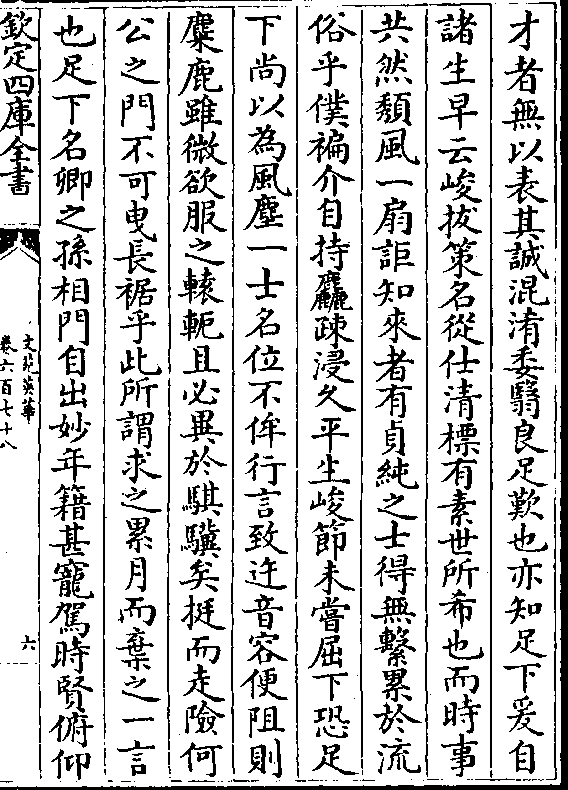 才者無以表其誠混淆委翳良足歎也亦知足下爰自
諸生早云峻拔策名從仕清標有素世所希也而時事
共然頽風一扇詎知來者有貞純之士得無繫累於流
俗乎僕褊介自持麤疎浸久平生峻節未嘗屈下恐足
下尚以為風塵一士名位不侔行言致迕音容便阻則
麋鹿雖微欲服之轅軛且必異於騏驥矣挺而走險何
公之門不可曳長裾乎此所謂求之累月而棄之一言
也足下名卿之孫相門自出妙年籍甚寵駕時賢俯仰
欽定四庫全書
文苑英華
卷六百七十八
六